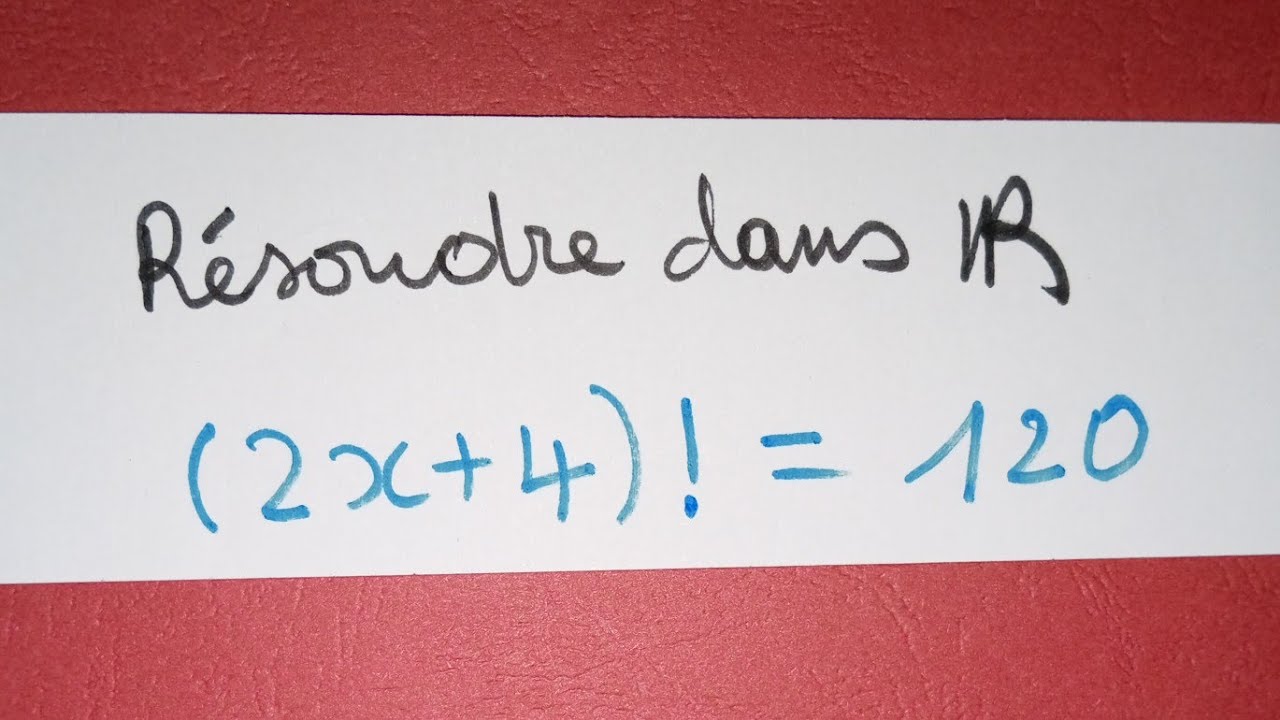 Résoudre dans ℝ
(2x+4)! = 120